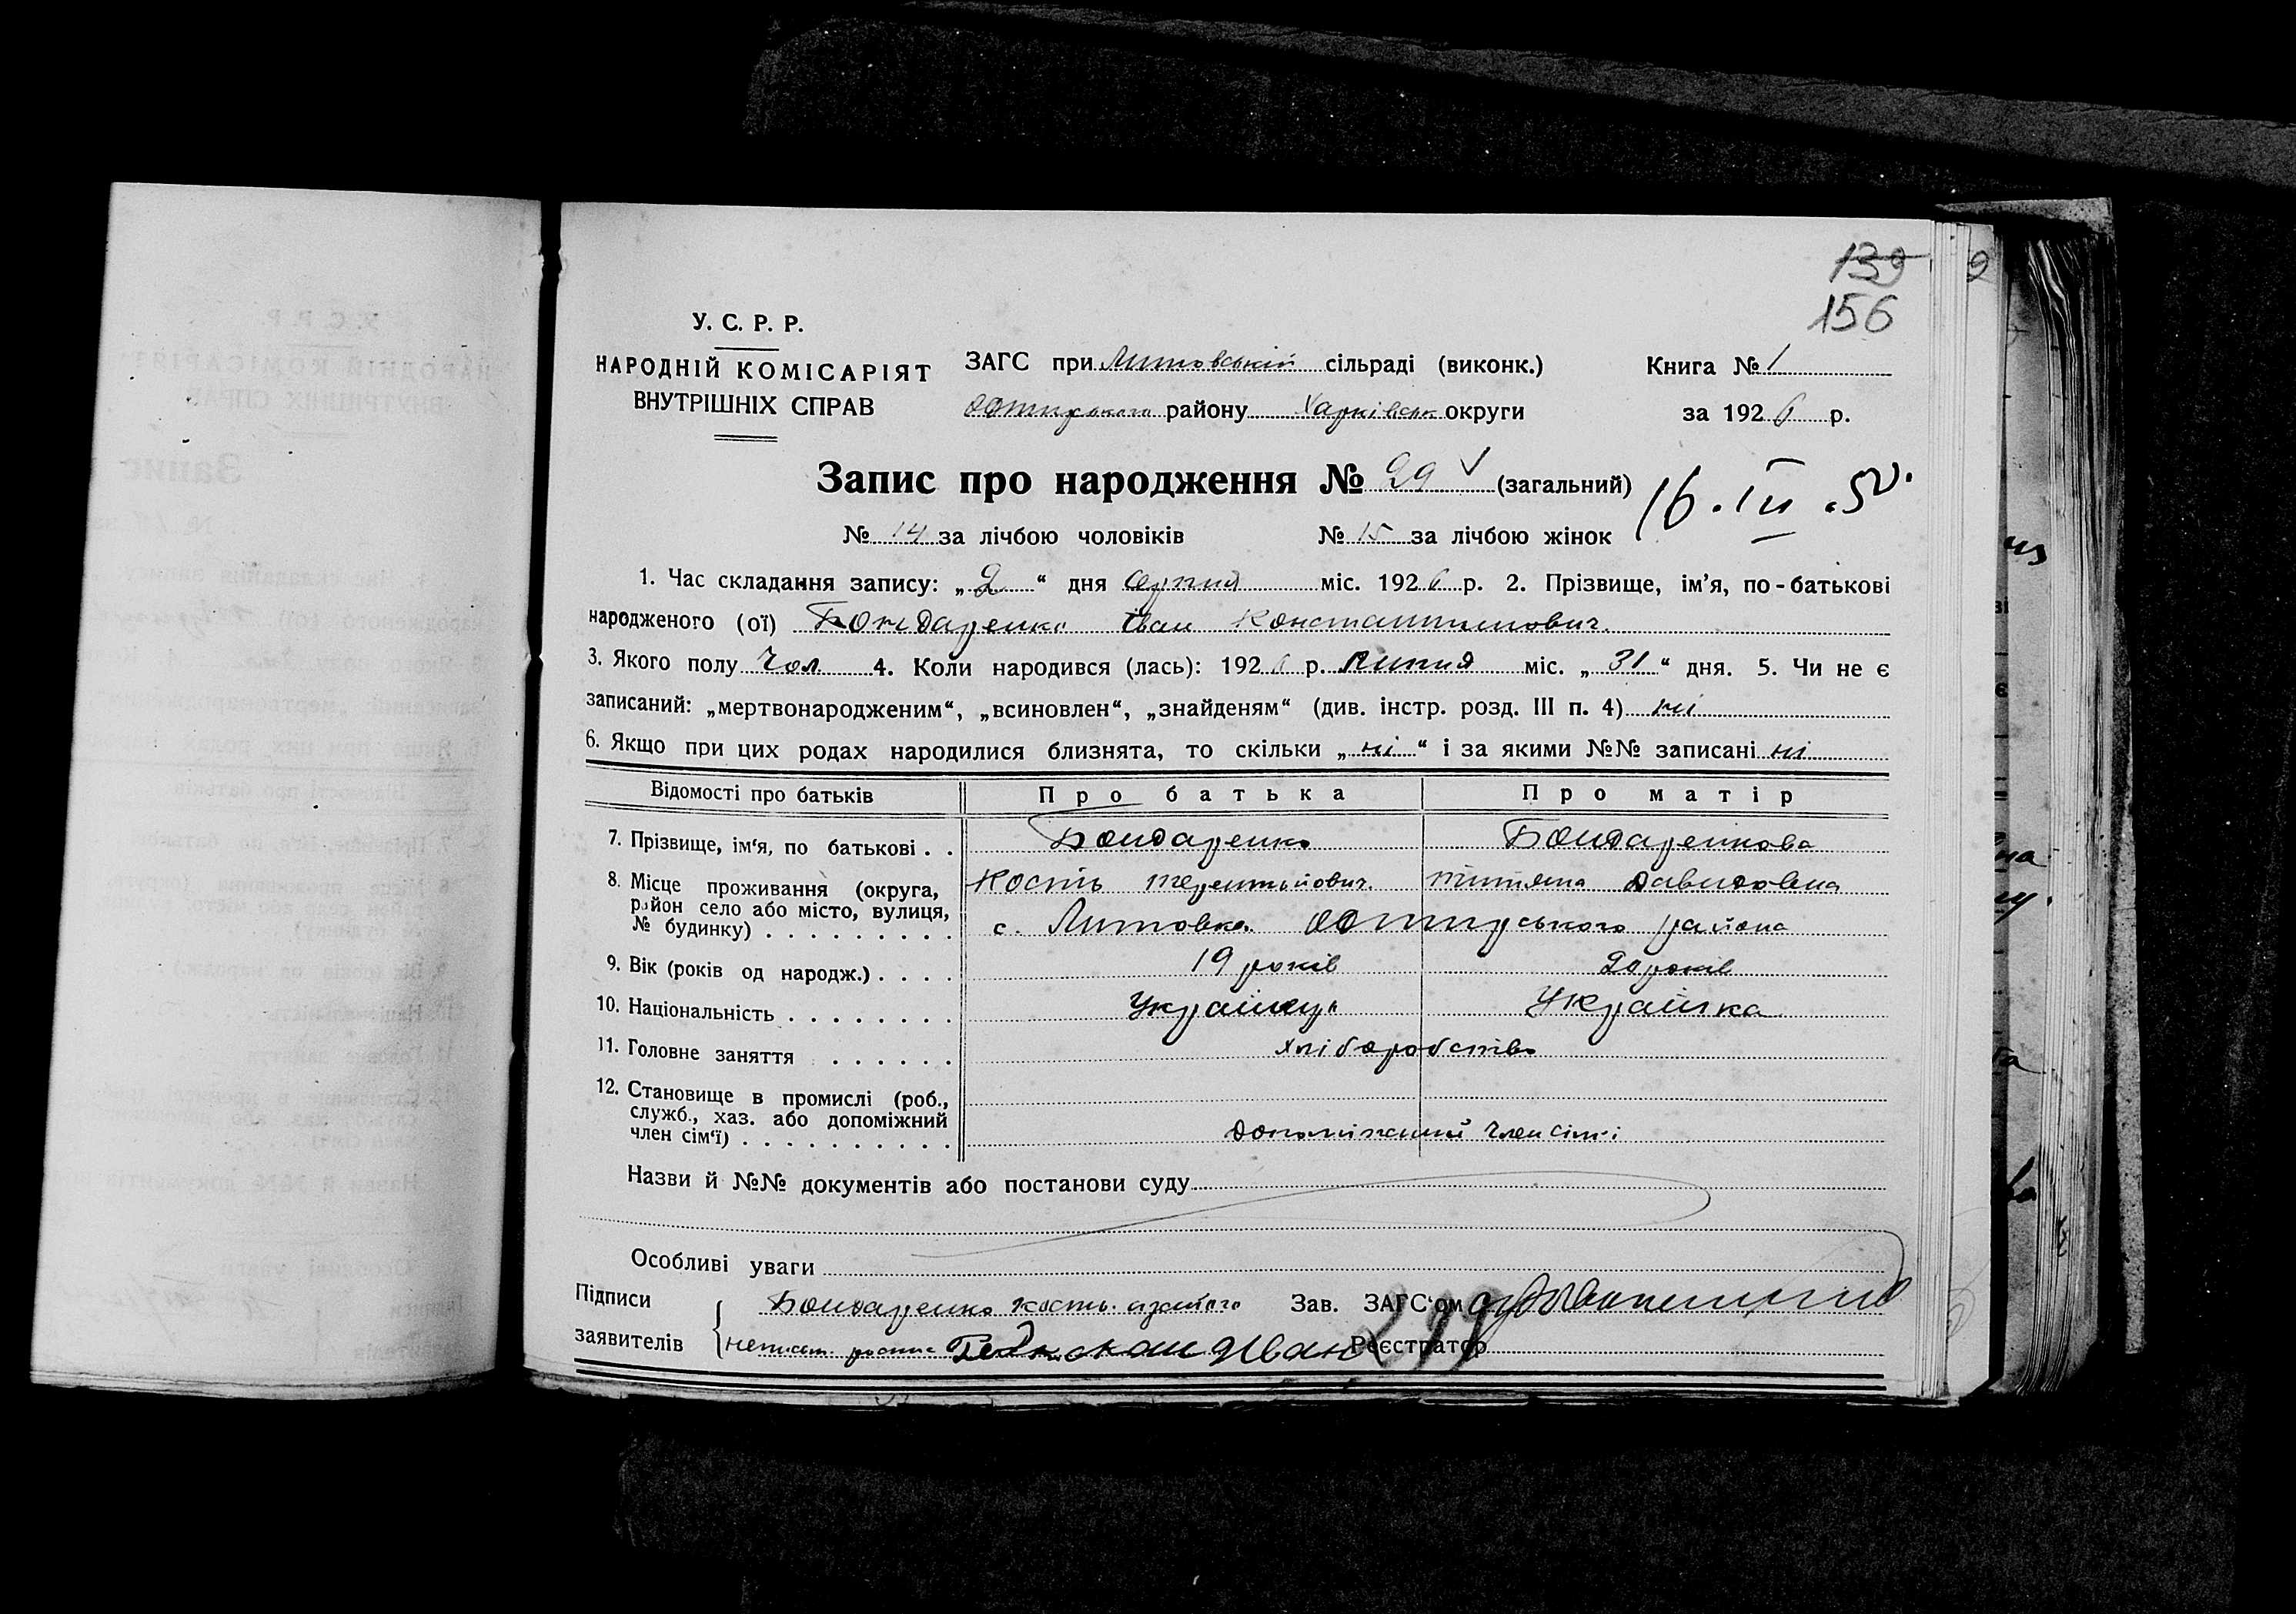 139
156
У. С. Р. Р.
НАРОДНІЙ КОМІСАРІЯТ
ВНУТРІШНІХ СПРАВ
ЗАГС при Литовській сільраді (виконк.)
району Харківськ округи
Книга № 1
за 1926 р.
Запис про народження № 29 (загальний)
№ 14 за лічбою чоловіків № 15 за лічбою жінок
1. Час складання запису: „2“ дня серпня міс. 1926 р. 2. Прізвище, ім’я, по-батькові
народженого (ої) Бондаренко Іван Константинович.
3. Якого полу Чол 4. Коли народився (лась): 1926 р. Липня міс. „31“ дня. 5. Чи не є
записаний: „мертвонародженим“, „всиновлен“, „знайденям“ (див. інстр. розд. III п. 4) ні
6. Якщо при цих родах народилися близнята, то скільки „ні“ і за якими №№ записані ні
Відомості про батьків Про батька Про матір
7. Прізвище, ім‘я, по батькові . . Бондаренко Бондаренкова
Кость Терентьйович. Титяна Давидовна
8. Місце проживання (округа,
район село або місто, вулиця,
№ будинку) . . . . . . . . . с. Литовка района
9. Вік (років од народж.) . . . . 19 років 20 років
10. Національність . . . . . . . . Українець Українка
11. Головне заняття . . . . . . хліборобство
12. Становище в промислі (роб.,
служб., хаз. або допоміжний
член сім‘ї) . . . . . . . . . . допоміжний член сімї
Назви й №№ документів або постанови суду
Особливі уваги
Підписи
заявителів
Бондаренко Кость
Зав. ЗАГС‘ом
Іван
Реєстратор